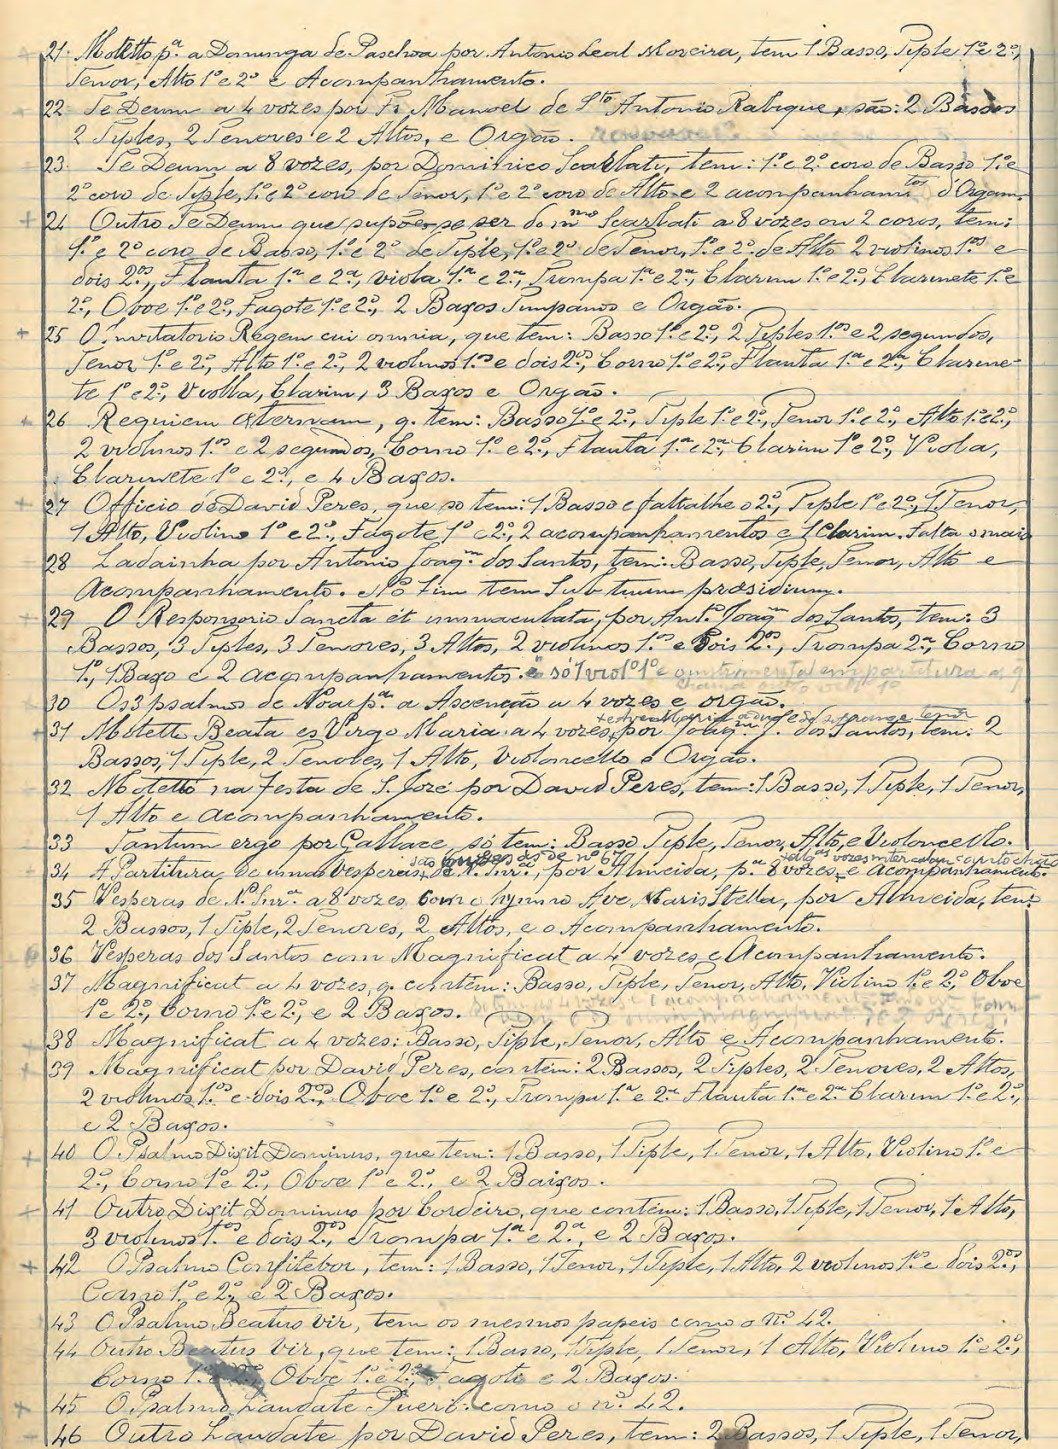 21. Motetto pª. a Dominga de Paschoa por Antonio Leal Moreira, tem 1 Basso, Tiple 1º e 2º,
Tenor, Alto 1º e 2º e Acompanhamento.
22 Te Deum a 4 vozes por Fr. Manoel de Stº Antonio, são: 2 Bassos
2 Tiples, 2 Tenores e 2 Altos, e Orgão.
23. Te Deum a 8 vozes, por Dominico Scarlati, tem: 1º e 2º coro de Basso 1º e
2º coro de Tiple, 1º e 2º coro de Tenor, 1º e 2º coro de Alto e 2 acompanhamtos d'Orgam.
24 Outro Te Deum que supõe-se ser do mmo Scarlati a 8 vozes ou 2 coros, tem:
1º e 2º coro de Basso, 1º e 2º de Tiple, 1º e 2º de Tenor, 1º e 2º de Alto 2 violinos 1os e
dois 2os, Flauta 1ª e 2ª, viola 1ª e 2ª, Trompa 1ª e 2ª, Clarim 1º e 2º, Clarinete 1º e
2º, Oboe 1º e 2º, Fagote 1º e 2º, 2 Baxos Timpanos e Orgão.
25 O Invitatorio Regem cui omnia, que tem: Basso 1º e 2º, 2 Tiples 1os e 2 segundos,
Tenor 1º e 2º, Alto 1º e 2º, 2 violinos 1os e dois 2os, Corno 1º e 2º, Flauta 1ª e 2ª, Clarine-
te 1º e 2º, Violla, Clarim, 3 Baxos e Orgão.
26 Requiem æternam, q. tem: Basso 1º e 2º, Tiple 1º e 2º, Tenor 1º e 2º, Alto 1º e 2º,
2 violinos 1os e 2 segundos, Corno 1º e 2º, Flauta 1ª e 2ª Clarim 1º e 2º, Viola,
Clarinete 1º e 2º, e 4 Baxos.
27 Officio de David Peres, que so tem: 1 Basso e faltalhe o 2º, Tiple 1º e 2º, 1 Tenor,
1 Alto, Violino 1º e 2º, Fagote 1º e 2º, 2 acompanhamentos e 1 Clarim. Falta o mais
28 Ladainha por Antonio Joaqm. dos Santos, tem: Basso, Tiple, Tenor, Alto e
Acompanhamento. No fim tem Sub tuum præsidium.
29 O Responsorio Sancta et immaculata, por Antº Joaqm dos Santos, tem: 3
Bassos, 3 Tiples, 3 Tenores, 3 Altos, 2 violinos 1os e dois 2os, Trompa 2ª, Corno
1º, 1 Baxo e 2 acompanhamentos. e só 1 viol. 1º e em partitura
30 Os 3 psalmos de Noa pª a Ascenção a 4 vozes e orgão.
31 Motetto Beata es Virgo Maria a 4 vozes, por Joaqm J. dos Santos, tem: 2
Bassos, 1 Tiple, 2 Tenores, 1 Alto, Violoncello e Orgão.
32 Motetto na Festa de S. José por David Peres, tem: 1 Basso, 1 Tiple, 1 Tenor,
1 Alto e Acompanhamento.
33 Tantum ergo por Gallace, só tem: Basso Tiple, Tenor, Alto, e Violoncello.
34 A Partitura de umas Vesperas de N. Snrª, por Almeida, pª 8 vozes e acompanhamento.
35 Vesperas de N. Snrª a 8 vozes com o hymno Ave Maris Stella, por Almeida, tem:
2 Bassos, 1 Tiple, 2 Tenores, 2 Altos, e o Acompanhamento.
36 Vesperas dos Santos com Magnificat a 4 vozes, e Acompanhamento.
37 Magnificat a 4 vozes, q. contém: Basso, Tiple, Tenor, Alto, Violino 1º e 2º, Oboe
1º e 2º, Corno 1º e 2º, e 2 Baxos.
38 Magnificat a 4 vozes: Basso, Tiple, Tenor, Alto e Acompanhamento.
39 Magnificat por David Peres, contém: 2 Bassos, 2 Tiples, 2 Tenores, 2 Altos,
2 violinos 1os e dois 2os, Oboe 1º e 2º, Trompa 1ª e 2ª Flauta 1ª e 2ª Clarim 1º e 2º,
e 2 Baxos.
40 O Psalmo Dixit Dominus, que tem: 1 Basso, 1 Tiple, 1 Tenor, 1 Alto, Violino 1º e
2º, Corno 1º e 2º, Oboe 1º e 2º, e 2 Baixos.
41 Outro Dixit Dominus por Cordeiro, que contém: 1 Basso, 1 Tiple, 1 Tenor, 1 Alto,
3 violinos 1os e dois 2os, Trompa 1ª e 2ª, e 2 Baxos.
42 O Psalmo Confitebor, tem: 1 Basso, 1 Tenor, 1 Tiple, 1 Alto, 2 violinos 1os e dois 2os,
Corno 1º e 2º, e 2 Baxos.
43 O Psalmo Beatus vir, tem os mesmos papeis como o nº 42.
44 Outro Beatus vir, que tem: 1 Basso, 1 Tiple, 1 Tenor, 1 Alto, Violino 1º e 2º,
Corno 1º e 2º, Oboe 1º e 2º, Fagote e 2 Baxos.
45 O Psalmo Laudate Pueri: como o nº 42.
46 Outro Laudate por David Peres, tem: 2 Bassos, 1 Tiple, 1 Tenor,